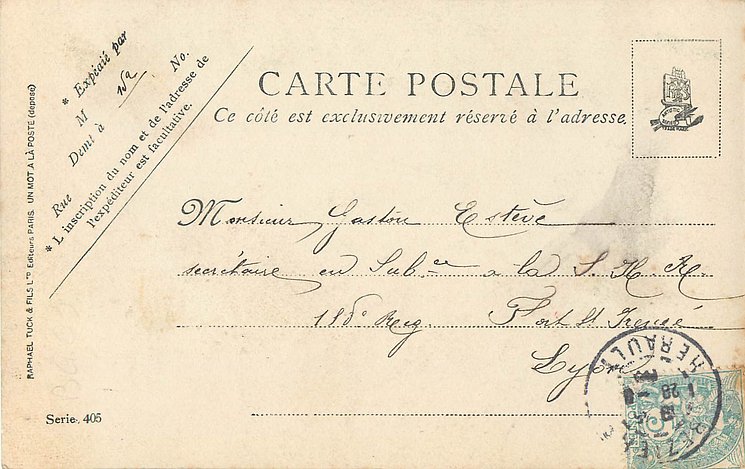 CARTE POSTALE
Ce côté est exclusivement réservé à l'adresse.
* Expédié par
M
Demt à
No.
Rue
* L'inscription du nom et de l'adresse de
l'expéditeur est facultative.
RAPHAEL TUCK & FILS LTD Editeurs PARIS. UN MOT A LA POSTE (déposé)
Monsieur Gaston Estève
secrétaire en Sub.ce a la S. H. R.
Reg. Fort St Irénée
Lyon
HERAULT
Serie 405